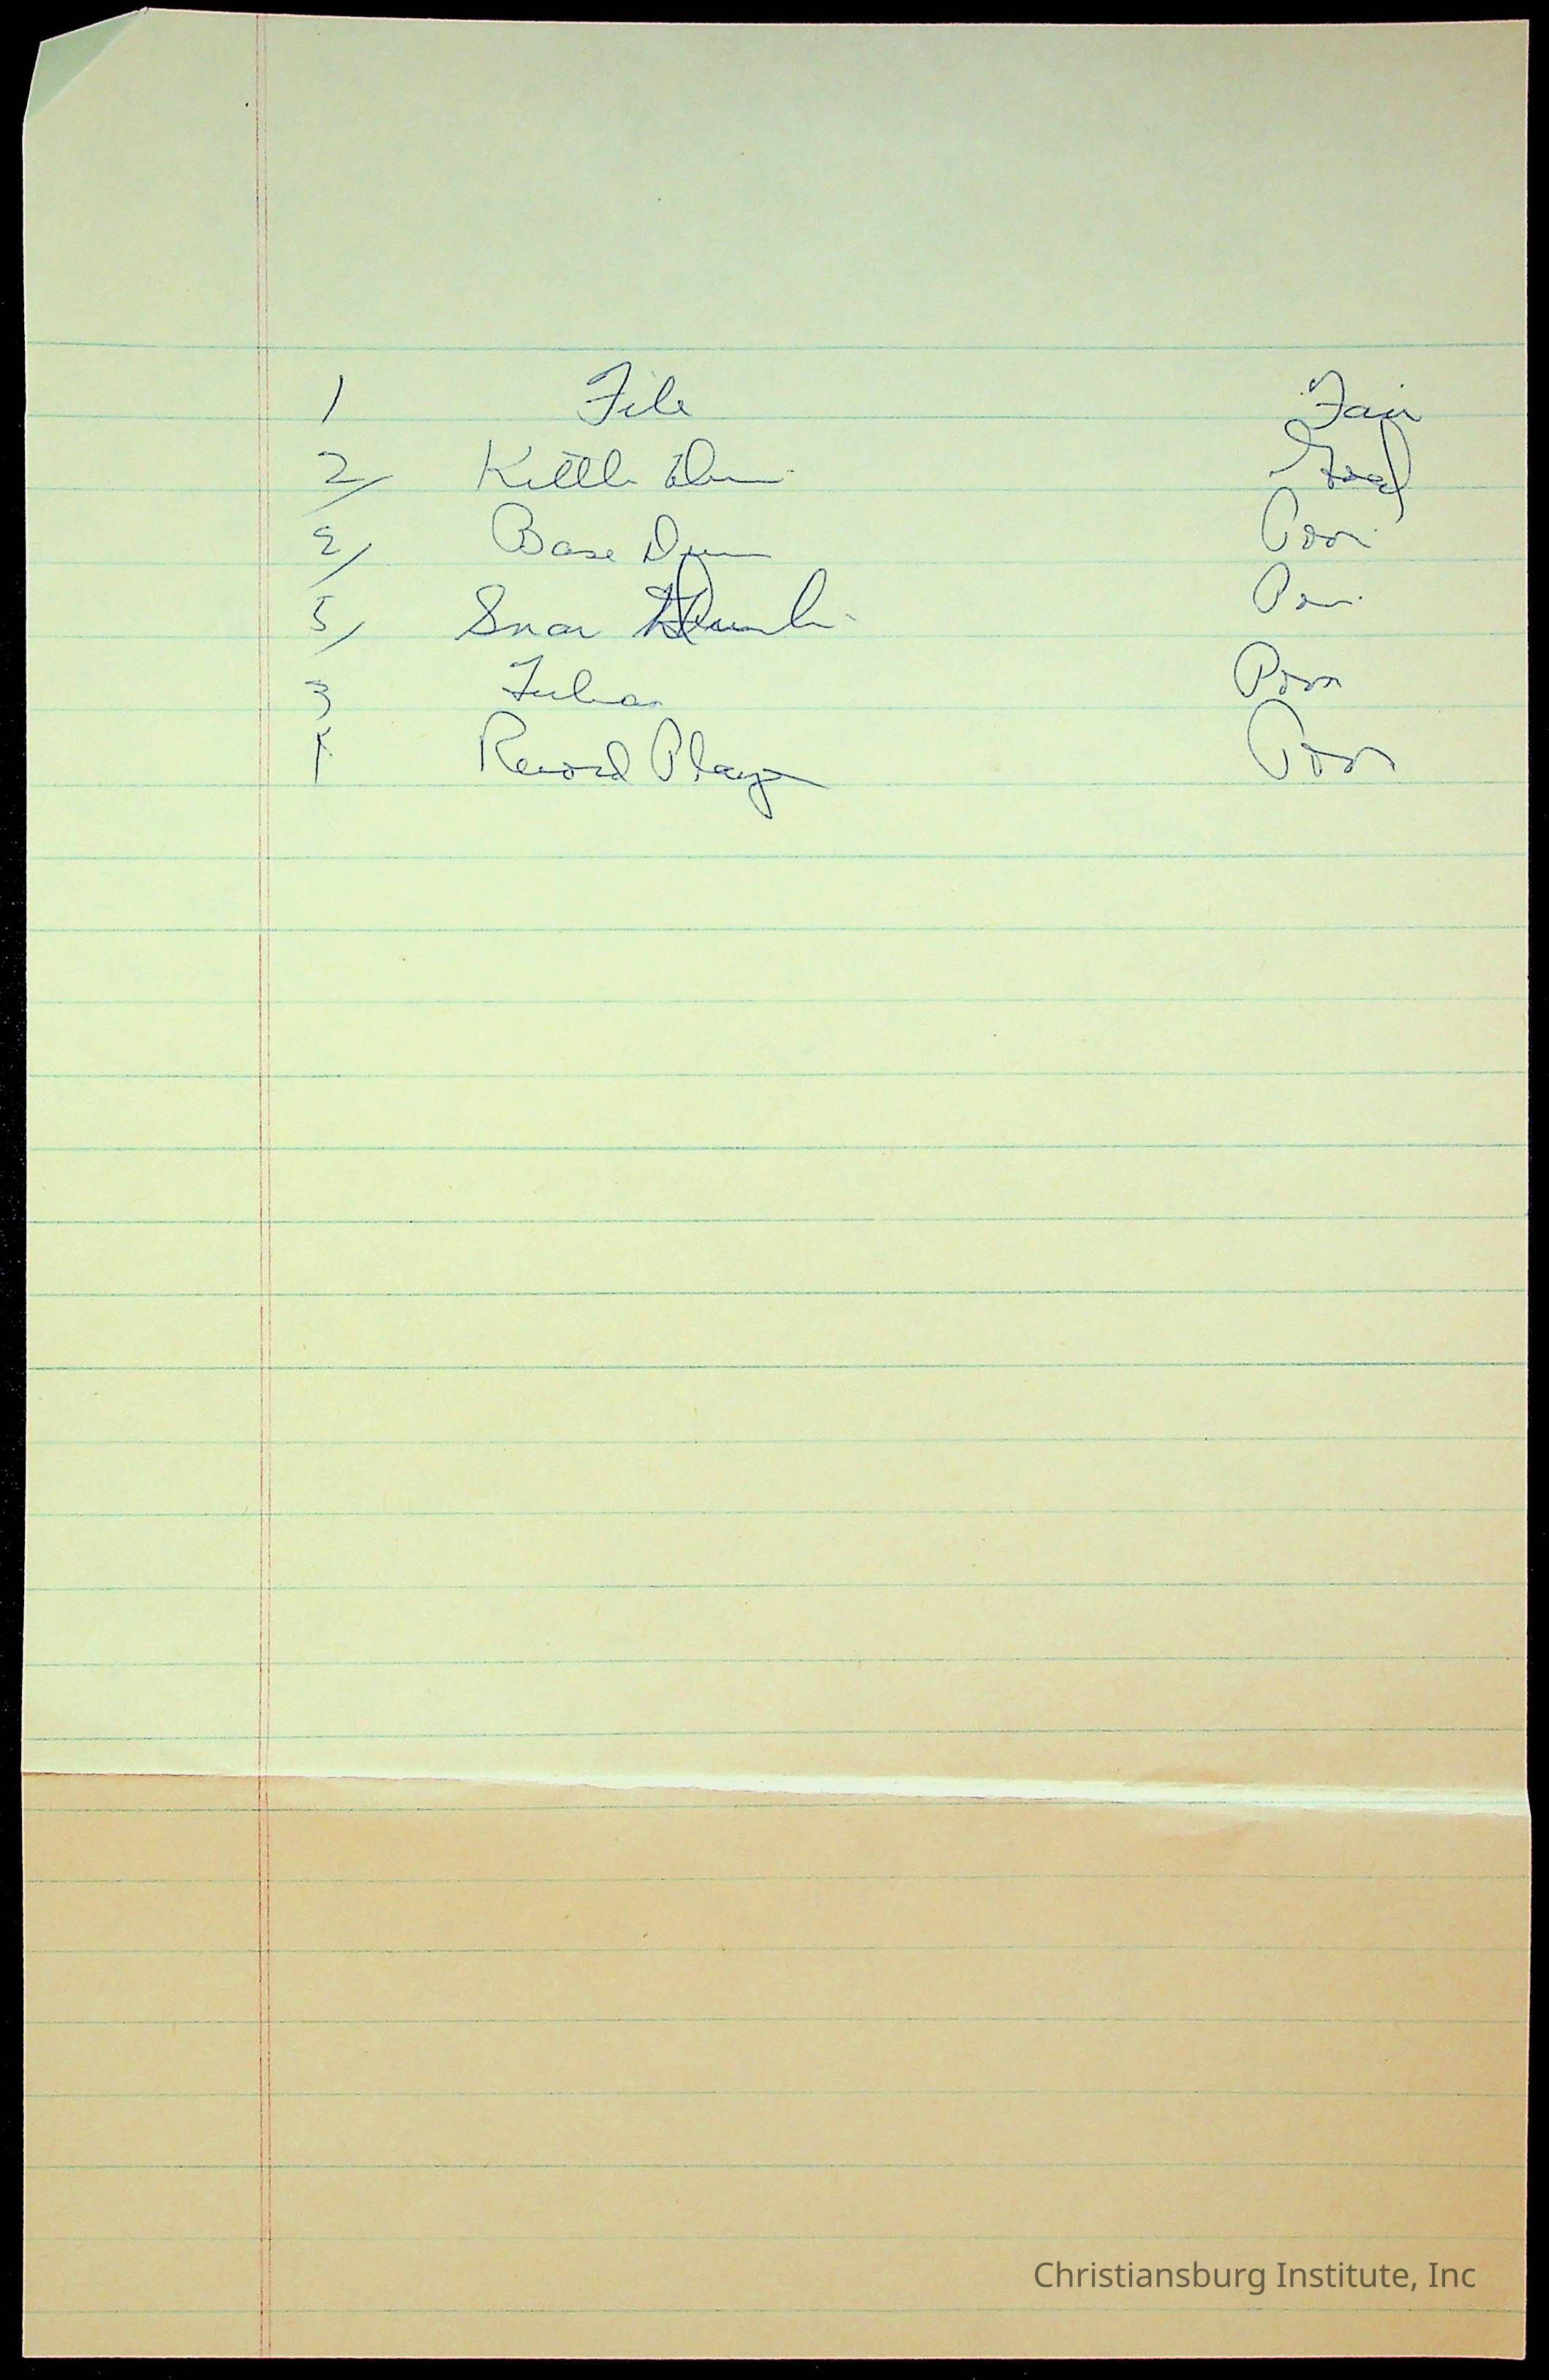 1 File Fair
2/ Kettle Drum Good
2/ Base Drum Poor
5/ Snar Drumb Poor
3 Tubas Poor
1 Record Player Poor
Christiansburg Institute, Inc